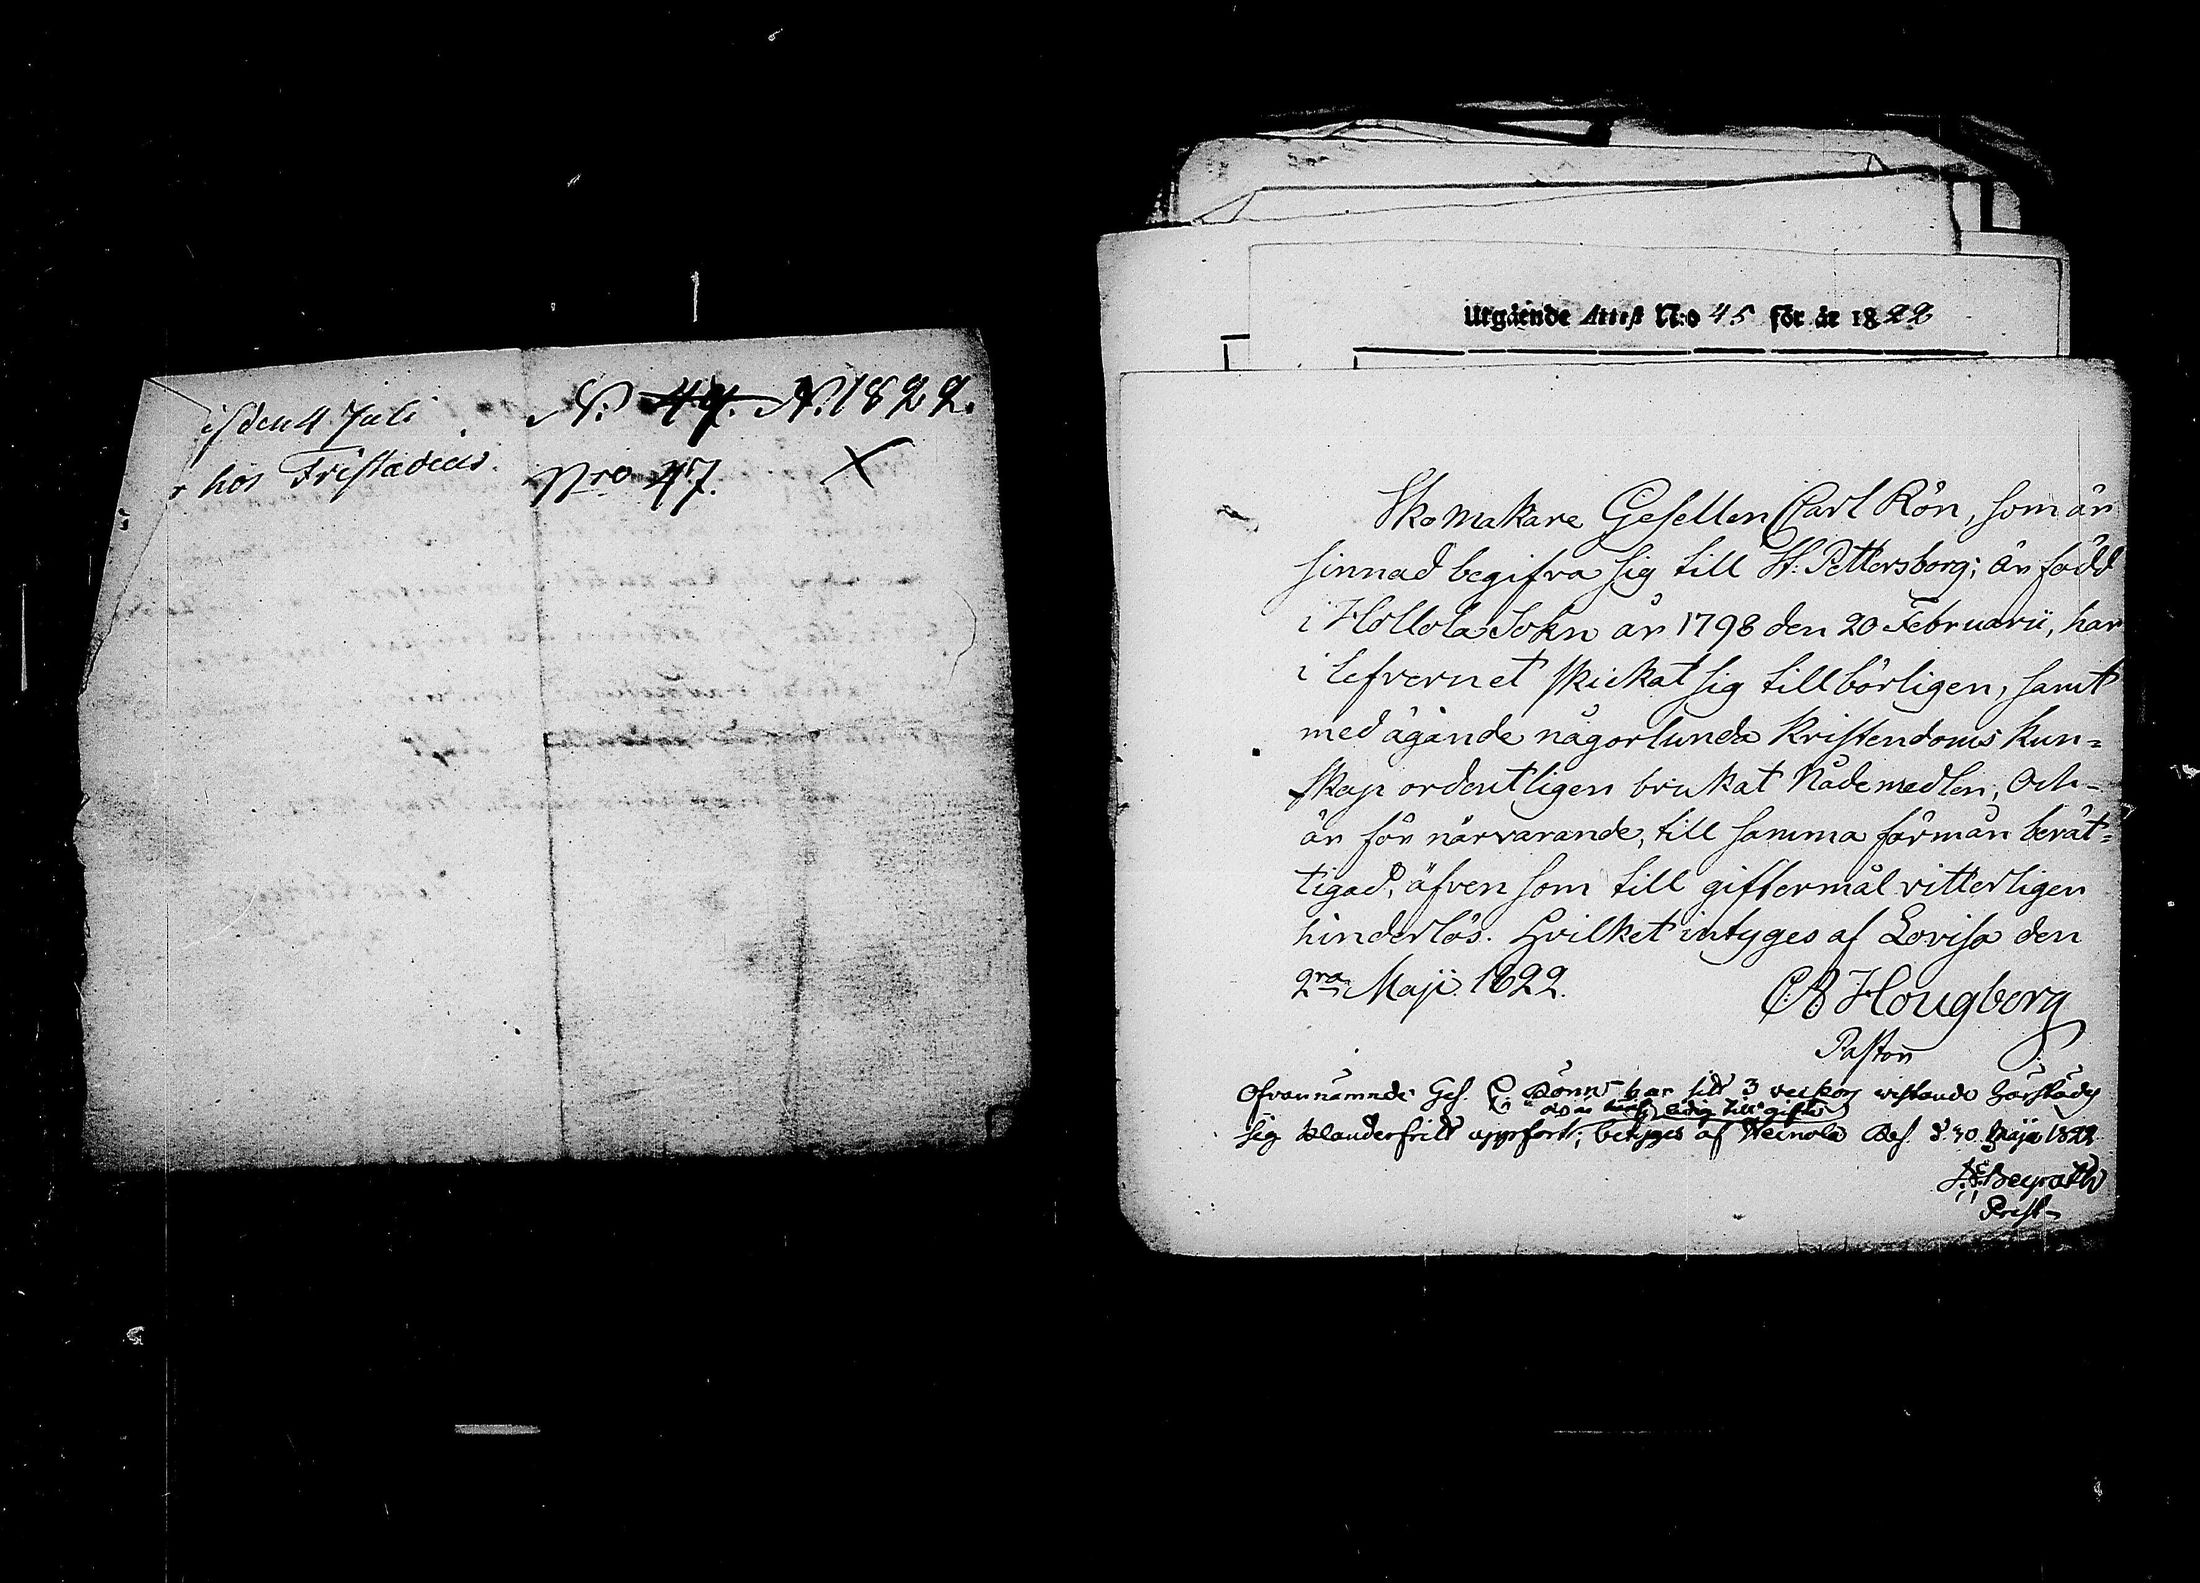 isden 4 Juli
hos Fristadius.
N. 49. N. 1822.
Nro 47.
Utgående Attest N:o 45 för år 1822
Skomakare Gesellen Carl Rön, som är
sinnad begifva sig till St. Pettersborg; är född
i Hollola Sokn år 1798 den 20 Februarii, har
i lefvernet skickat sig tillbörligen, samt
med ägande någorlunda Kristendoms kun=
skap ordentligen brukat Nådemedlen; Och
är för närvarande, till samma förmån berät=
tigad, äfven som till giftermål vitterligen
hinderlös. Hvilket intyges af Lovisa den
2ra Maji 1822.
C. A Hougberg
Pastor
Ofvannämnde Ges. C Rönn har sitt 3 veckors vistande härstädes
ledig till gifte
sig klanderfritt uppfört; betyges af Heinola d. 30 Maji 1822
Beyrath
Prest